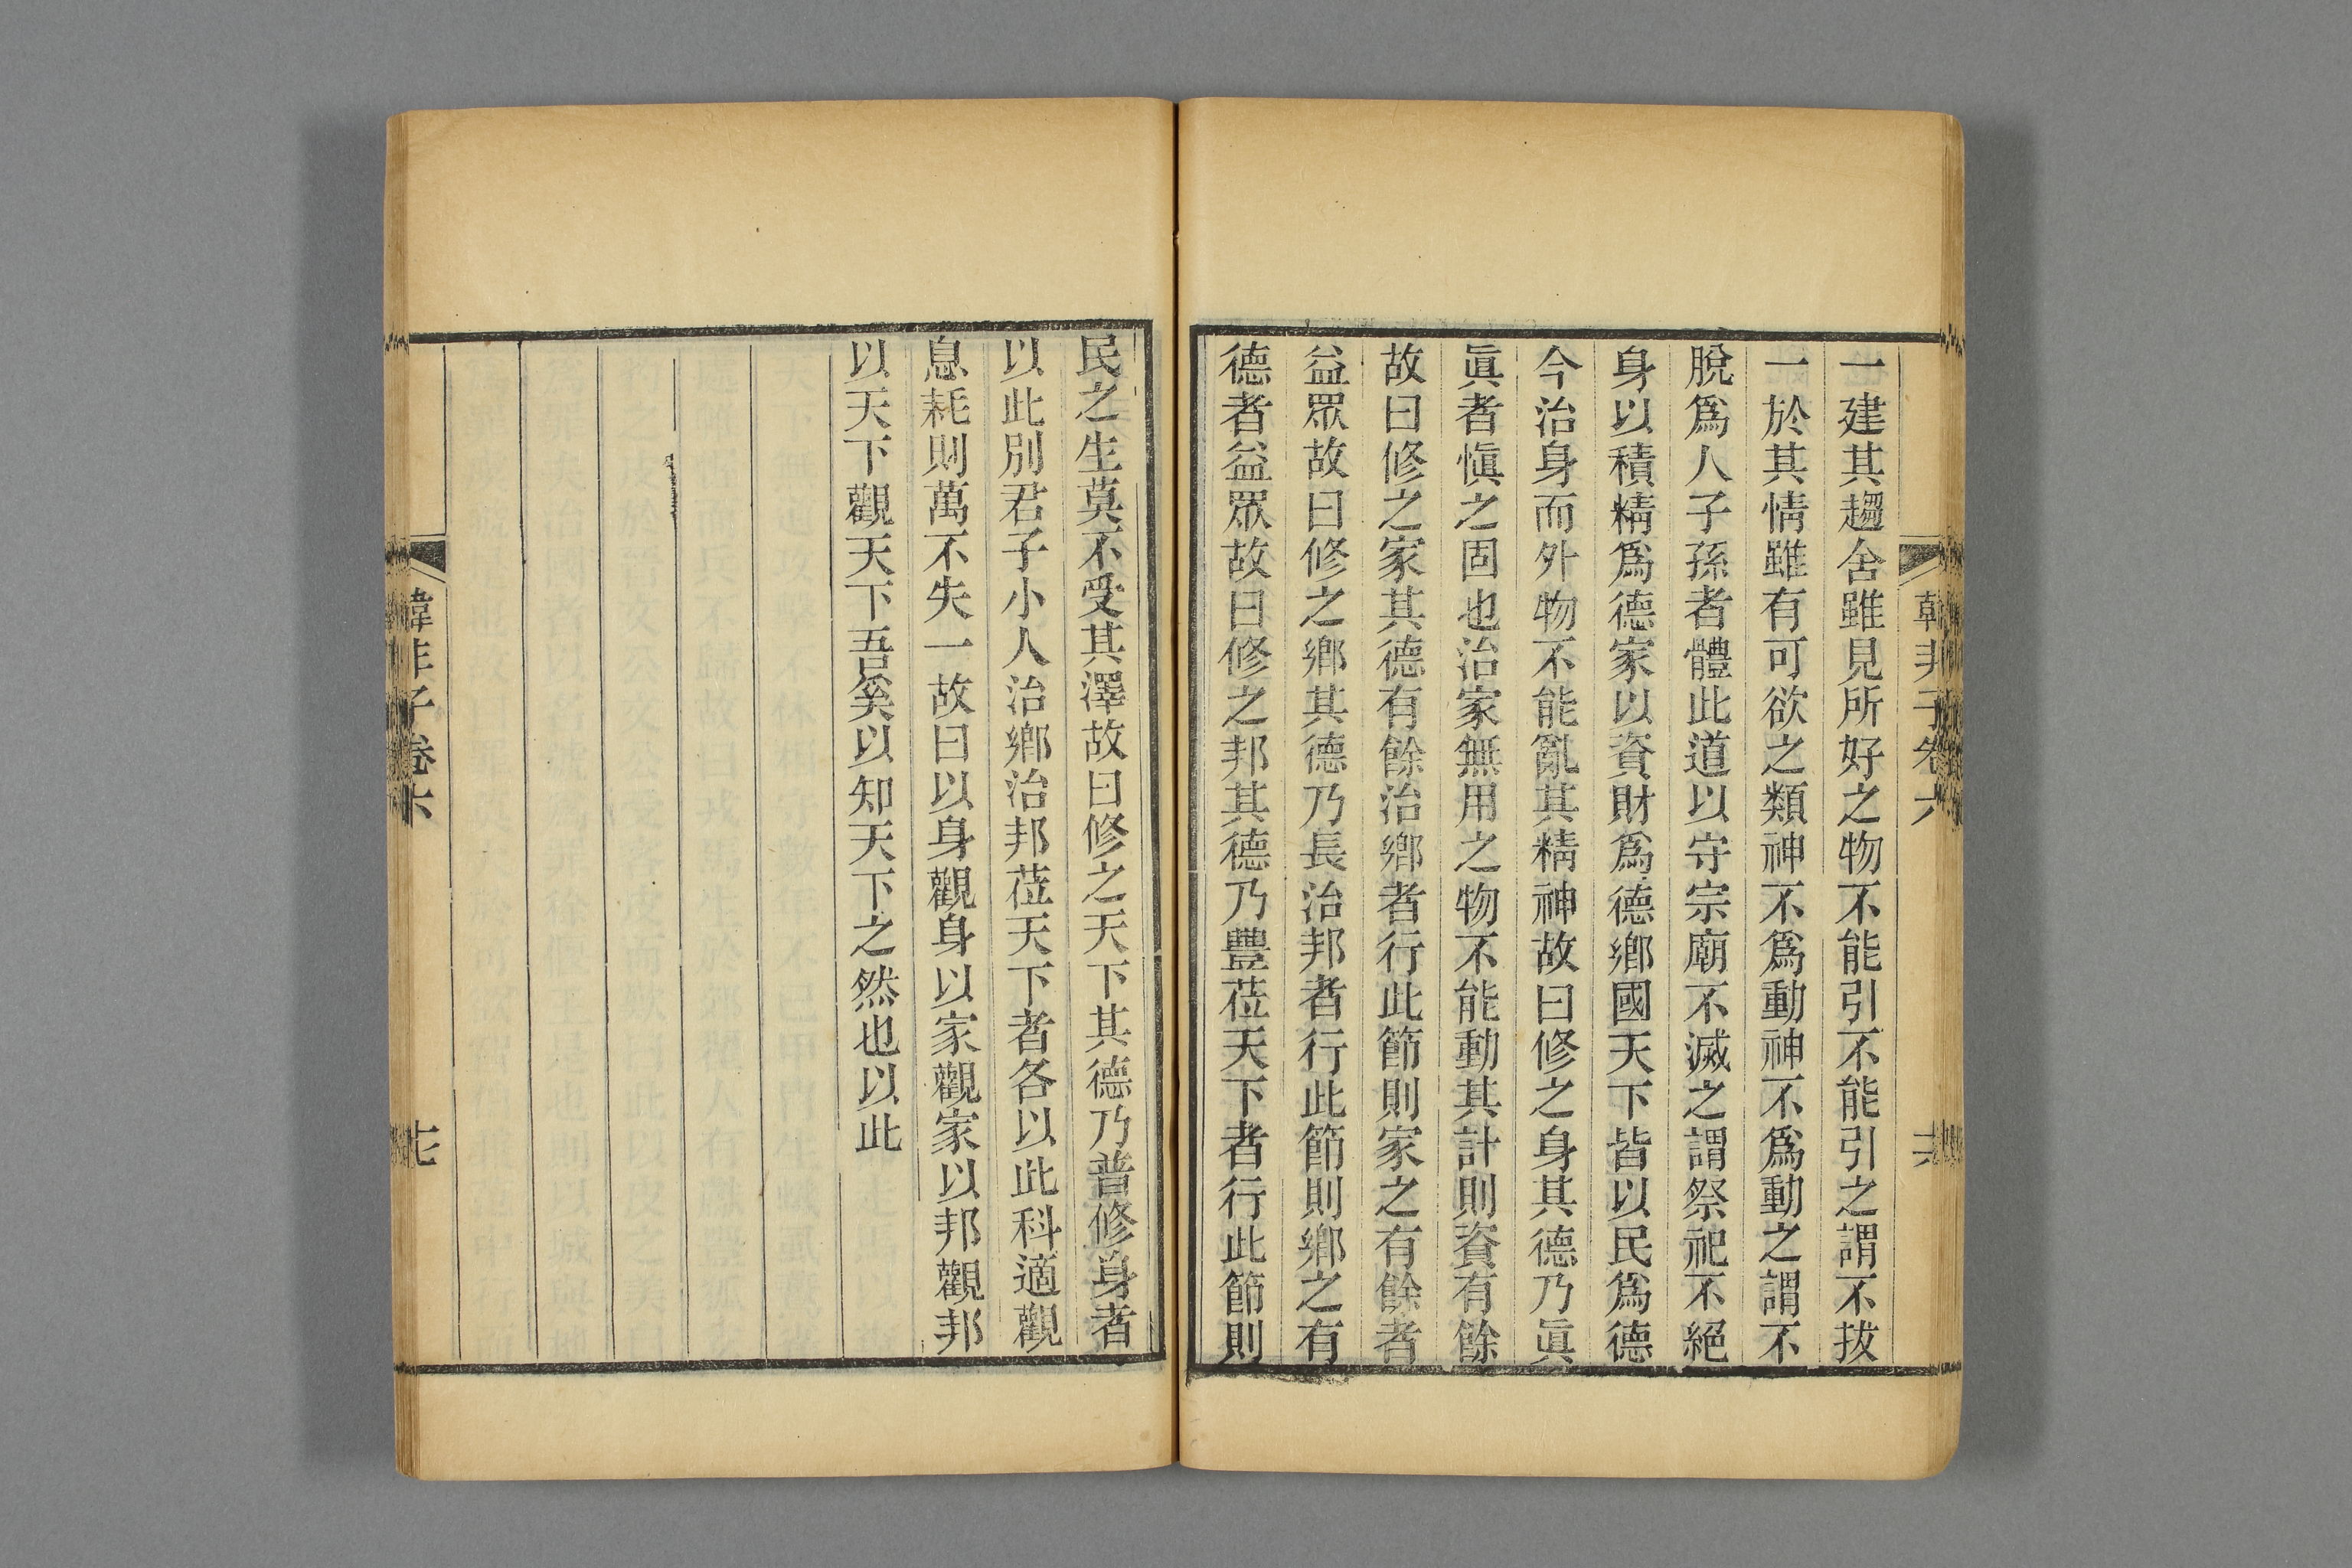 韓非子卷六
一建其趨舍雖見所好之物不能引不能引之謂不拔
一於其情雖有可欲之類神不爲動神不爲動之謂不
脫爲人子孫者體此道以守宗廟不滅之謂祭祀不絕
身以積精爲德家以資財爲德鄉國天下皆以民爲德
今治身而外物不能亂其精神故曰修之身其德乃眞
眞者愼之固也治家無用之物不能動其計則資有餘
故曰修之家其德有餘治鄉者行此節則家之有餘者
益眾故曰修之鄉其德乃長治邦者行此節則鄉之有
德者益眾故曰修之邦其德乃豐莅天下者行此節則
民之生莫不受其澤故曰修之天下其德乃普修身者
以此別君子小人治鄉治邦莅天下者各以此科適觀
息耗則萬不失一故曰以身觀身以家觀家以邦觀邦
以天下觀天下吾奚以知天下之然也以此
韓非子卷六